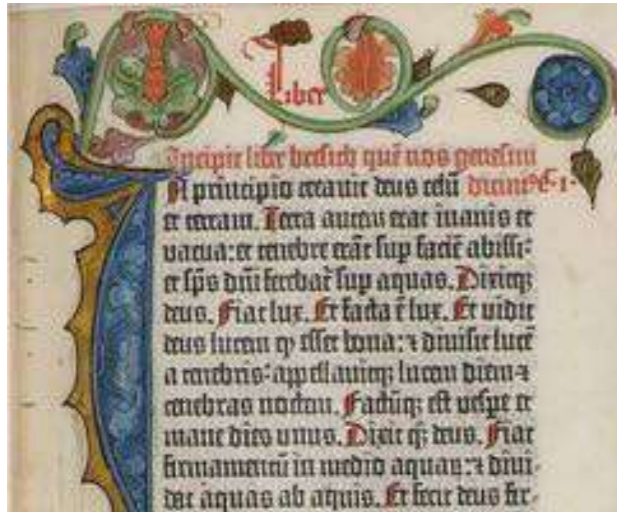 Liber
Incipit liber bresich quē nos genesim
A principio creavit deus celū dicim⁹ C 1
et terram. Terra autem erat inanis et
vacua: et tenebre erāt sup faciē abissi:
et sp̄s dn̄i ferebať sup aquas. Dixitq;
deus. Fiat lux. Et facta ē lux. Et vidit
deus lucem ꝙ esset bona: ⁊ divisit lucē
a tenebris: appellavitq; lucem diem ⁊
tenebras noctem. Factūq; est vespe et
mane dies unus. Dixit q̄; deus. Fiat
firmamentū in medio aquar̄: ⁊ divi-
dat aquas ab aquis. Et fecit deus fir-